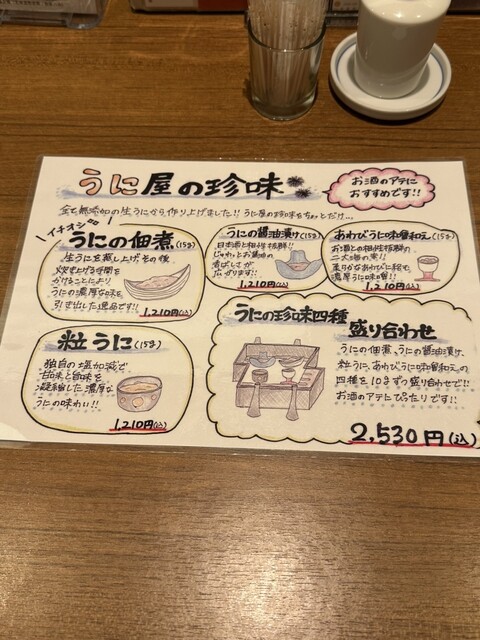 うに屋の珍味
お酒のアテに
おすすめです!!
全て無添加の生うにから作り上げました!! うに屋の珍味をちょっとだけ…
イチオシ
うにの佃煮(15g)
生うにを蒸し上げ、その後
炊き上げる手間を
かけることにより
うにの濃厚な味を
引き出した逸品です!!
1,210円(込)
うにの醤油漬け(15g)
日本酒と相性抜群!!
じゅわっとお醤油の
香ばしさが
広がります!!
1,210円(込)
あわびうに味噌和え(15g)
お酒との相性抜群の
二大海の幸!!
柔らかなあわびに絡む
濃厚うに味噌!!
1,210円(込)
粒うに(15g)
独自の塩加減で
甘味と旨味を
凝縮した濃厚な
うにの味わい!!
1,210円(込)
うにの珍味四種
盛り合わせ
うにの佃煮、うにの醤油漬け、
粒うに、あわびうに味噌和えの
四種を10gずつ盛り合わせで!!
お酒のアテにぴったりです!!
2,530円(込)